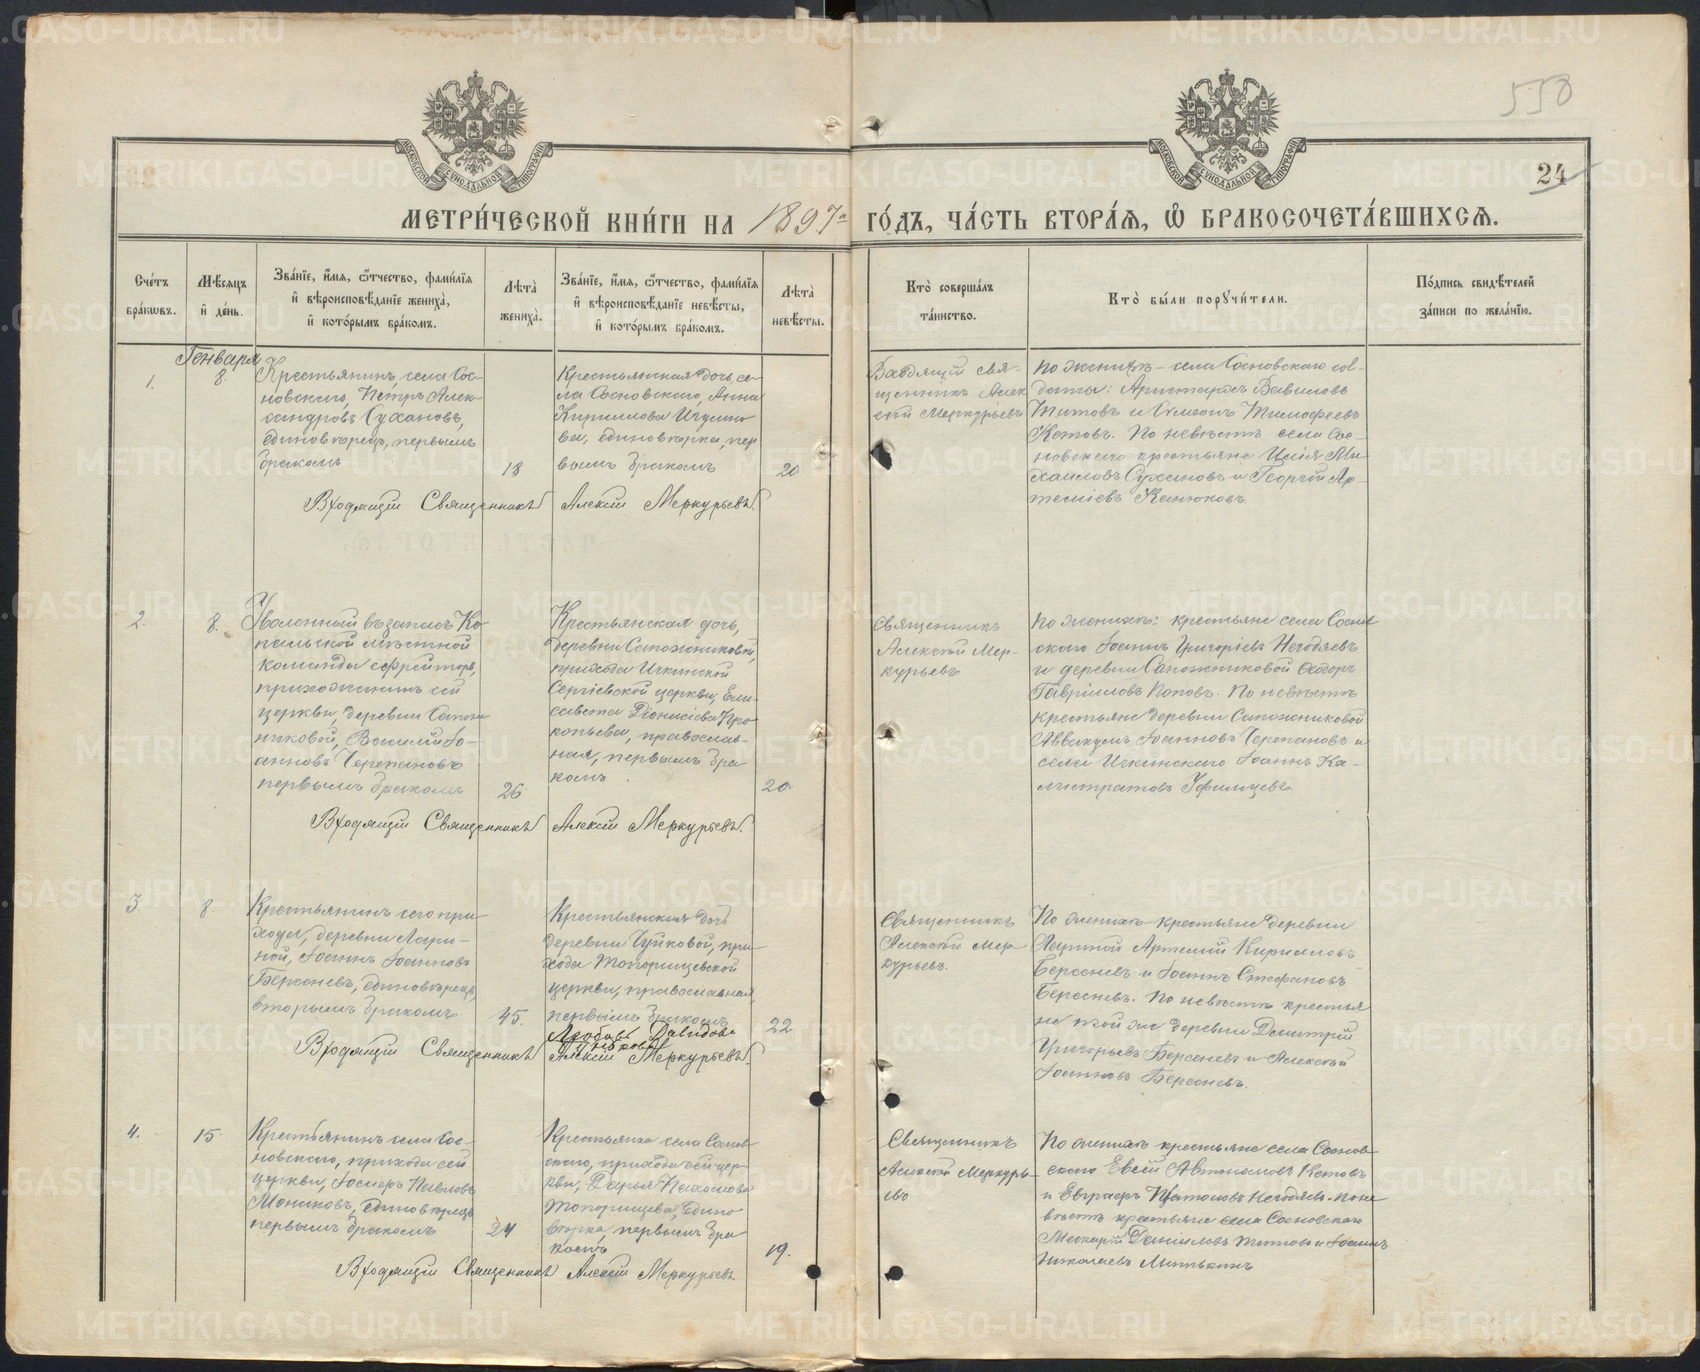 550
24
МЕТРИ́ЧЕСКОЙ КНИ́ГИ НА 1897й ГО́ДЪ, ЧА́СТЬ ВТОРА́Я, Ѿ БРАКОСОЧЕТА́ВШИХСЯ.
Сче́тъ бра́кѡвъ.
Мѣ́сяцъ и́ де́нь.
Зва́нїе, и́мя, ѻ́тчество, фами́лїя и́ вѣроисповѣ́данїе жениха̀, и́ кото́рымъ бра́комъ.
Лѣта̀ жениха̀.
Зва́нїе, и́мя, ѻ́тчество, фами́лїя и́ вѣроисповѣ́данїе невѣ́сты, и́ кото́рымъ бра́комъ.
Лѣта̀ невѣ́сты.
Кто̀ соверша́лъ та́инство.
Кто̀ бы́ли поручи́тели.
По́дпись свидѣ́телей за́писи по жела́нїю.
Генваря
1.
8.
Крестьянинъ села Сос-
новскаго, Петръ Алек-
сандровъ Сухановъ,
единовѣрецъ, первымъ
бракомъ
18
Крестьянская дочь, се-
ла Сосновскаго, Анна
Кириллова
ва, единовѣрка, пер
вымъ бракомъ
20
Входящій свя-
щенникъ Алек
сѣй Меркурьевъ
По женихѣ – села Сосновскаго сол-
даты: Аристархъ Вавиловъ
Титовъ и Симеонъ Тимофеевъ
Кетовъ. По невѣстѣ села Сос-
новскаго крестьяне Илія Ми-
хаиловъ Сухановъ и Георгій Ар-
темiевъ Канюковъ
Входящій Священникъ Алексій Меркурьевъ.
2.
8.
Уволенный въ запасъ Ко
пальской мѣстной
команды ефрейторъ,
прихожанинъ сей
церкви, деревни Сапож
никовой, Василій Іо-
анновъ Черепановъ
первымъ бракомъ
26
Крестьянская дочь,
деревни Сапожниковой,
прихода Ичкинской
Сергіевской церкви, Ели-
савета Діонисіева Про
копьева, православ-
ная, первымъ бра
комъ
20
Священникъ
Алексѣй Мер-
курьевъ
По женихѣ: крестьяне села Соснов
скаго Іоаннъ Григоріевъ Негодяевъ
и деревни Сапожниковой Ѳедоръ
Гавріиловъ Поповъ. По невѣстѣ
крестьяне деревни Сапожниковой
Аввакумъ Іоанновъ Черепановъ и
села Ичкинскаго Іоаннъ Ка-
листратовъ Уфимцевъ.
Входящій Священникъ Алексій Меркурьевъ.
3
8.
Крестьянинъ сего при-
хода, деревни Лари-
ной, Іоаннъ Іоанновъ
Берсеневъ, единовѣрецъ,
вторымъ бракомъ
45.
Крестьянская дочь
деревни Чуйковой, при-
хода Топорищевской
церкви, православная
первымъ бракомъ
Любовь Давидова
22
Священникъ
Алексѣй Мер
курьевъ.
По женихѣ крестьяне деревни
Лариной Артемій Кирилловъ
Берсеневъ и Іоаннъ Стефановъ
Берсеневъ. По невѣстѣ крестья
не той же деревни Димитрій
Григорьевъ Берсеневъ и Алексѣй
Іоанновъ Берсеневъ.
Входящій Священникъ Алексій Меркурьевъ.
4.
15
Крестьянинъ села Сос-
новскаго, прихода сей
церкви, Іосифъ Павловъ
единовѣрецъ
первымъ бракомъ
24
Крестьянка села Соснов
скаго, прихода сей цер
кви, Дарья
Топорищева, едино
вѣрка, первымъ бра
комъ
19.
Священникъ
Алексѣй Меркурь-
евъ
По женихѣ крестьяне села Соснов-
скаго Евсей Автономовъ Кетовъ
и Евграфъ Платоновъ Негодяевъ. По не
вѣстѣ крестьяне села Сосновскаго
Макарій Даниловъ Титовъ и Іоаннъ
Николаевъ
Входящій Священникъ Алексій Меркурьевъ